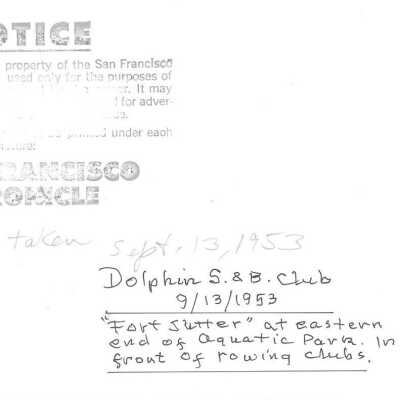 OTICE
property of the San Francisco
used only for the purposes of
It may
for adver-
under each
RANCISCO
taken Sept. 13, 1953
Dolphin S. & B. Club
9/13/1953
"Fort Sutter" at eastern
end of Aquatic Park. In
front of rowing clubs.